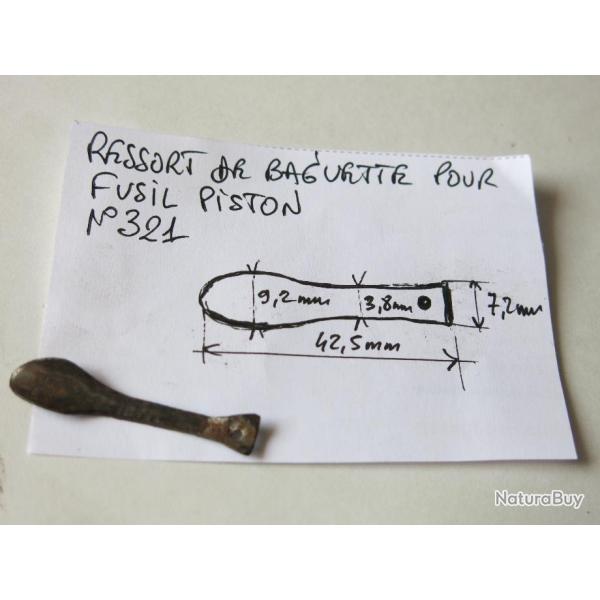 RESSORT DE BAGUETTE POUR
FUSIL PISTON
N°321
9,2mm
3,8mm
7,2mm
42,5mm
NaturaBuy